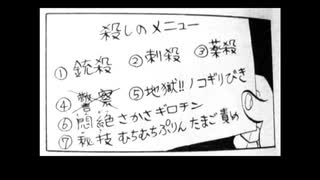 殺しのメニュー
①銃殺 ②刺殺 ③薬殺
④警察 ⑤地獄!!ノコギリびき
⑥悶絶さかさギロチン
⑦秘技むちむちぷりんたまご責め